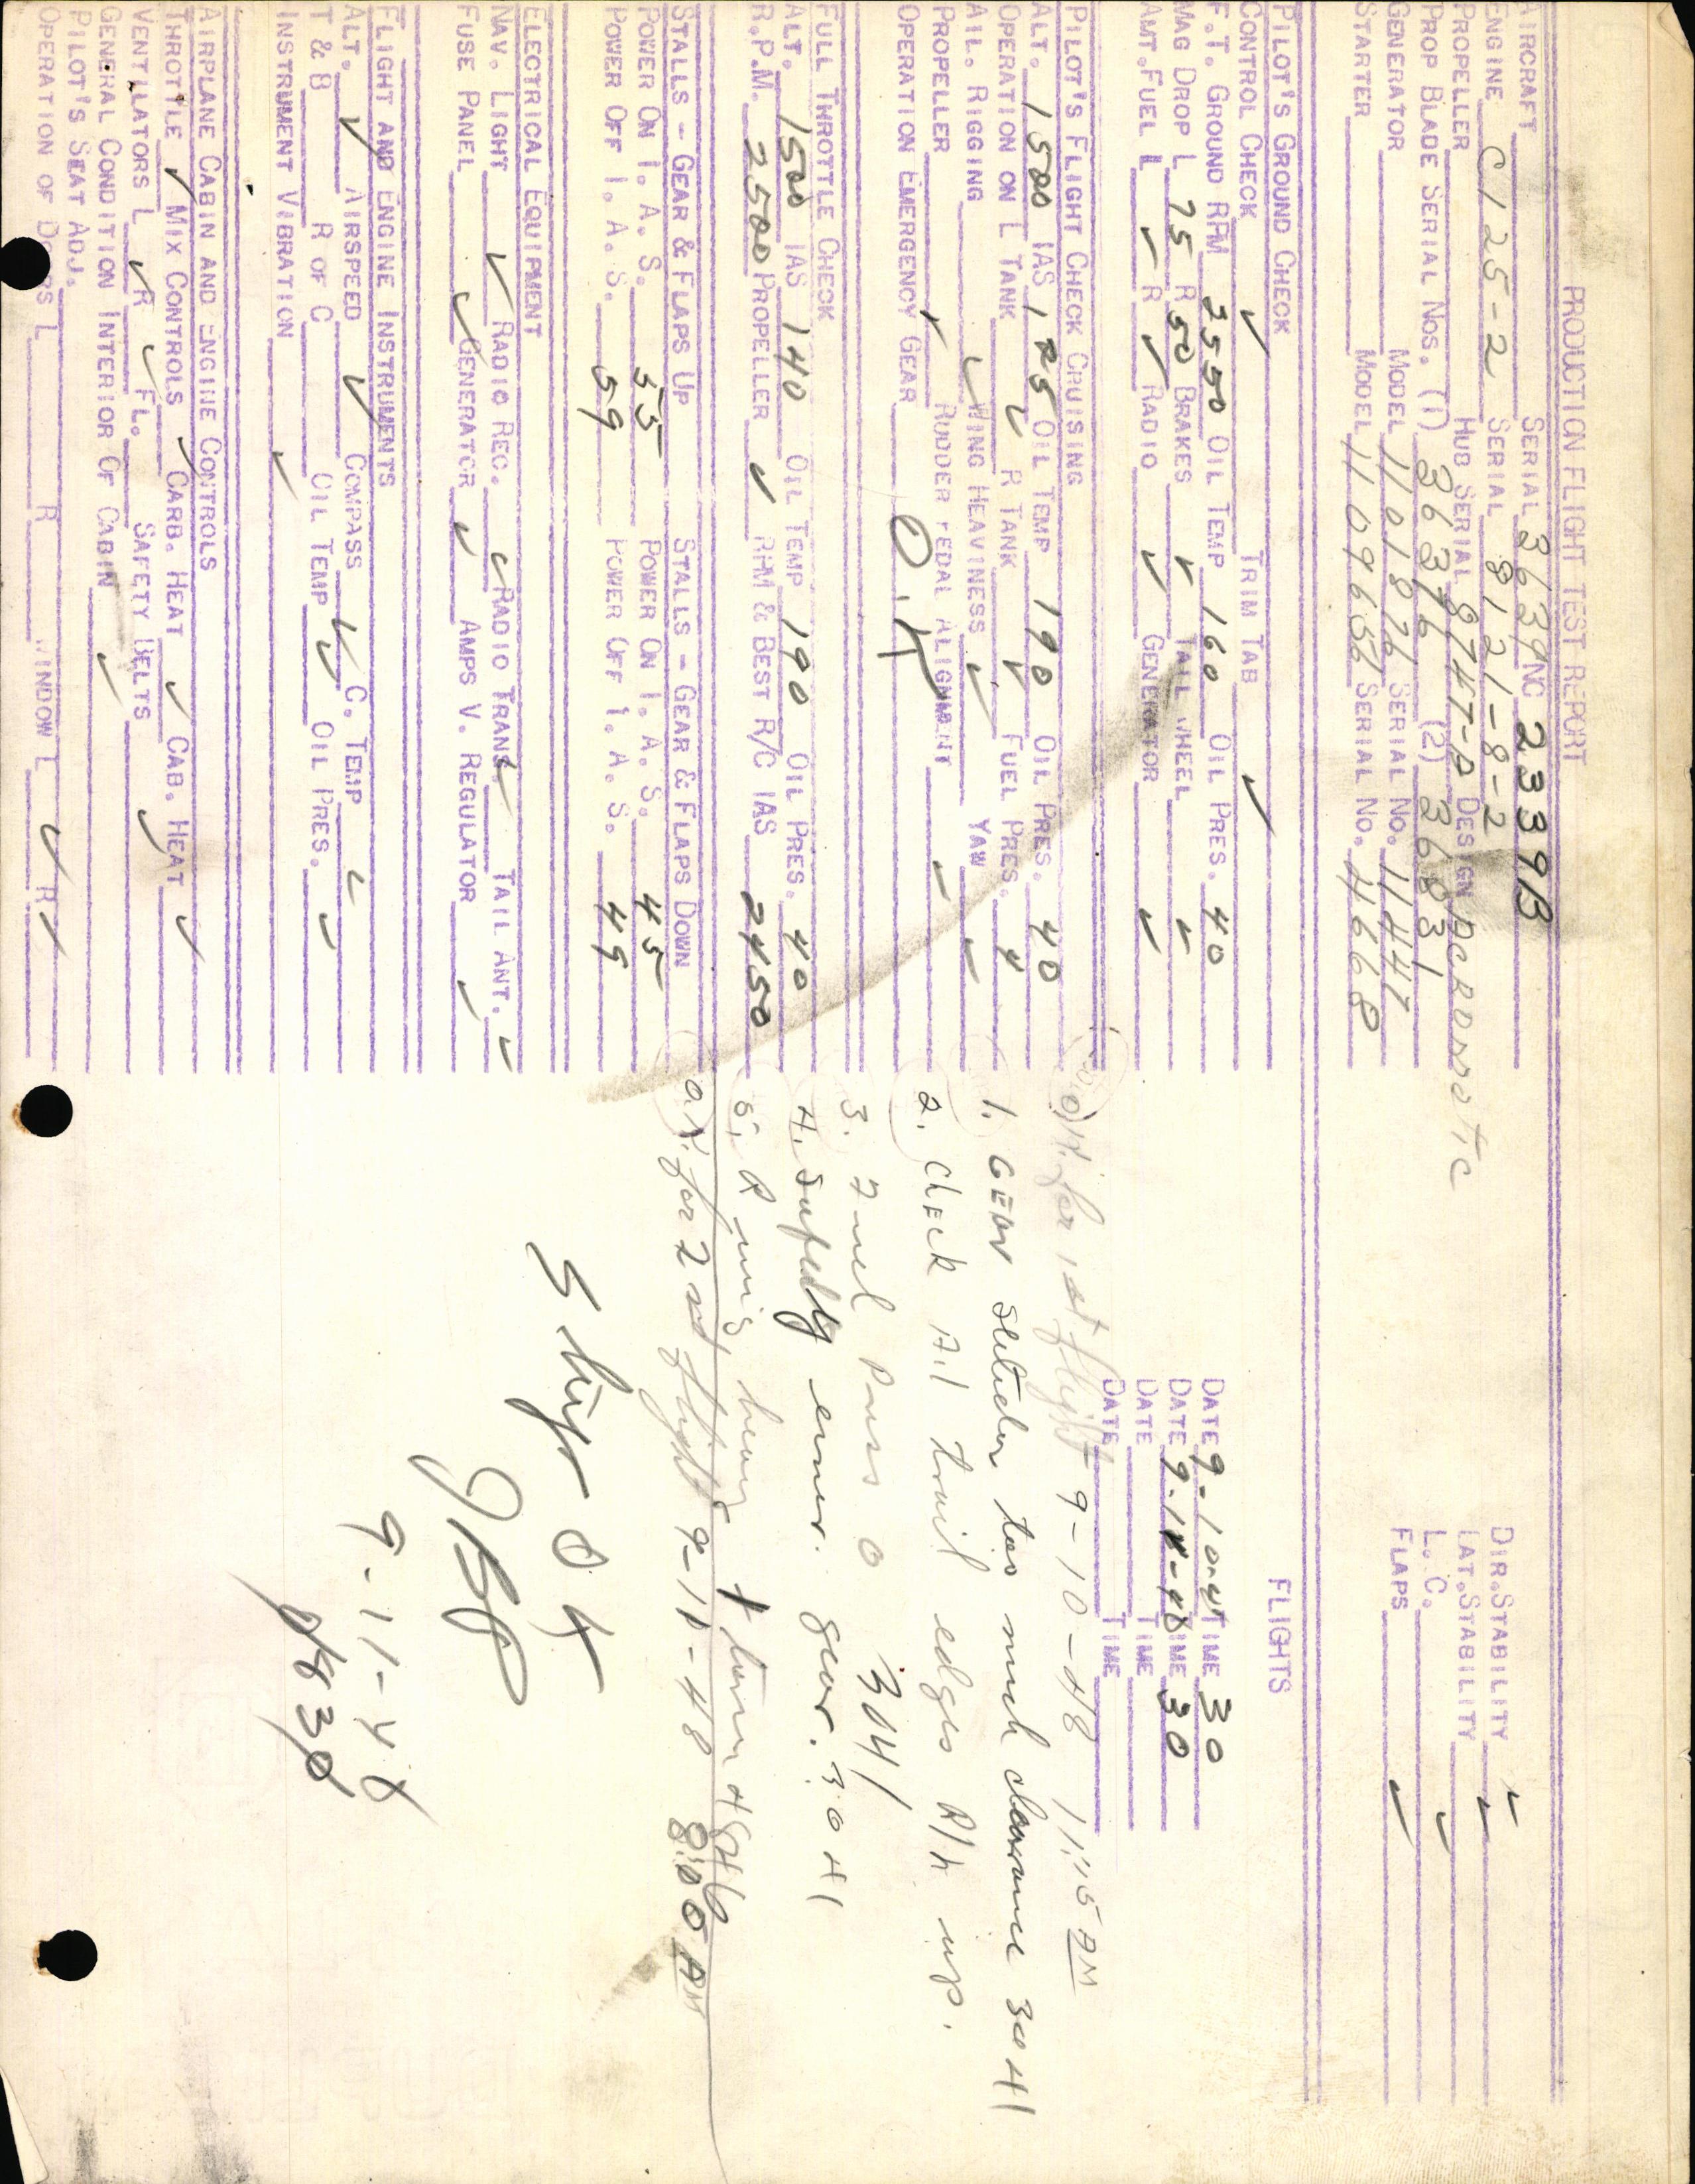 PRODUCTION FLIGHT TEST REPORT
AIRCRAFT SERIAL 3639 NC 2339B
ENGINE C125-2 SERIAL 8121-8-2 DIR. STABILITY ✓
PROPELLER HUB SERIAL DESIGN Aeromatic LAT. STABILITY ✓
PROP BLADE SERIAL NOS. (1) (2) 36831 L. C. ✓
GENERATOR MODEL 1101876 SERIAL NO. FLAPS ✓
STARTER MODEL 1109656 SERIAL NO. 4668
FLIGHTS
PILOT'S GROUND CHECK
CONTROL CHECK ✓ TRIM TAB ✓
F.T. GROUND RPM OIL TEMP 160 OIL PRES. 40 DATE 9-10-48 TIME 30
MAG DROP L 75 R 50 BRAKES ✓ TAIL WHEEL ✓ DATE TIME 30
AMT. FUEL L ✓ R ✓ RADIO ✓ GENERATOR ✓ DATE TIME
DATE TIME
PILOT'S FLIGHT CHECK CRUISING
ALT. 1500 IAS 125 OIL TEMP 190 OIL PRES. 40
OPERATION ON L TANK ✓ R TANK ✓ FUEL PRES. 4
AIL. RIGGING ✓ WING HEAVINESS ✓ YAW ✓
PROPELLER ✓ RUDDER PEDAL ALIGNMENT ✓
OPERATION EMERGENCY GEAR O.K.
FULL THROTTLE CHECK
ALT. 1500 IAS 140 OIL TEMP 190 OIL PRES. 40
R.P.M. 2500 PROPELLER ✓ RPM & BEST R/C IAS 2450
STALLS - GEAR & FLAPS UP STALLS - GEAR & FLAPS DOWN
POWER ON I. A. S. 55 POWER ON I. A. S. 45
POWER OFF I. A. S. 59 POWER OFF I. A. S. 49
ELECTRICAL EQUIPMENT
NAV. LIGHT ✓ RADIO REC. ✓ RADIO TRANS ✓ TAIL ANT. ✓
FUSE PANEL ✓ GENERATOR ✓ AMPS V. REGULATOR ✓
FLIGHT AND ENGINE INSTRUMENTS
ALT. ✓ AIRSPEED ✓ COMPASS ✓ C. TEMP ✓
T & B R OF C OIL TEMP ✓ OIL PRES. ✓
INSTRUMENT VIBRATION ✓
AIRPLANE CABIN AND ENGINE CONTROLS
THROTTLE ✓ MIX CONTROLS ✓ CARB. HEAT ✓ CAB. HEAT ✓
VENTILATORS L ✓ R ✓ FL. SAFETY BELTS ✓
GENERAL CONDITION INTERIOR OF CABIN ✓
PILOT'S SEAT ADJ.
OPERATION OF DOORS L R WINDOW L ✓ R ✓
O.K. for 1st flight 9-10-48 11:15 AM
1. GEAR selector too much clearance 3041
2. Check Ail trail edges R/h up.
3. Fuel Press 0 3041
4. Safety emer. gear. 3041
5. R wing heavy 1 turn
O.K. for 2nd flight 9-11-48 8:00 AM
Ship O K
9-11-48
0830